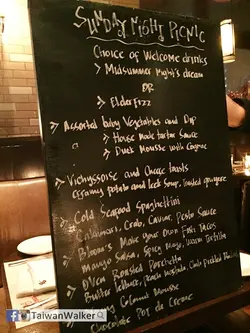 SUNDAY NIGHT PICNIC
Choice of Welcome drinks
> Midsummer Night's dream
OR
> Elder Fizz
> Assorted baby Vegetables and Dip
> House Made tartar Sauce
> Duck Mousse with Cognac
> Vichyssoise and Cheese toasts
creamy potato and leek Soup, toasted gruyere
> Cold Seafood Spaghettini
Calamari, Crab, Caviar, Pesto Sauce
> Make your Own Fish Tacos
Mango Salsa, Spicy Mayo, Warm Tortilla
> Oven Roasted Porchetta
Butter lettuce,
Mousse
Chocolate Pot de Creme
TaiwanWalker